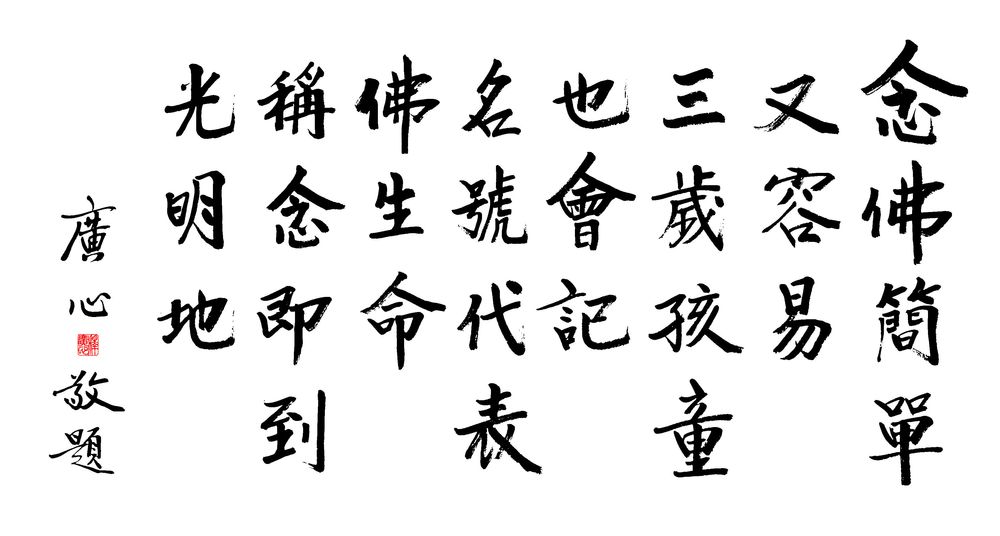 念佛簡單
又容易
三歲孩童
也會記
名號代表
佛生命
稱念即到
光明地
廣心敬題